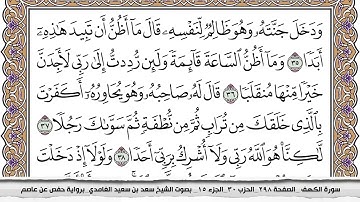 وَدَخَلَ جَنَّتَهُۥ وَهُوَ ظَالِمٌ لِّنَفْسِهِۦ قَالَ مَآ أَظُنُّ أَن تَبِيدَ هَٰذِهِۦٓ
أَبَدًا ٣٥ وَمَآ أَظُنُّ ٱلسَّاعَةَ قَآئِمَةً وَلَئِن رُّدِدتُّ إِلَىٰ رَبِّى لَأَجِدَنَّ
خَيْرًا مِّنْهَا مُنقَلَبًا ٣٦ قَالَ لَهُۥ صَاحِبُهُۥ وَهُوَ يُحَاوِرُهُۥٓ أَكَفَرْتَ
بِٱلَّذِى خَلَقَكَ مِن تُرَابٍ ثُمَّ مِن نُّطْفَةٍ ثُمَّ سَوَّىٰكَ رَجُلًا ٣٧
لَّٰكِنَّا۠ هُوَ ٱللَّهُ رَبِّى وَلَآ أُشْرِكُ بِرَبِّىٓ أَحَدًا ٣٨ وَلَوْلَآ إِذْ دَخَلْتَ
سورة الكهف _ الصفحة ٢٩٨ _ الحزب ٣٠ _ الجزء ١٥ _ بصوت الشيخ سعد بن سعيد الغامدي _ برواية حفص عن عاصم